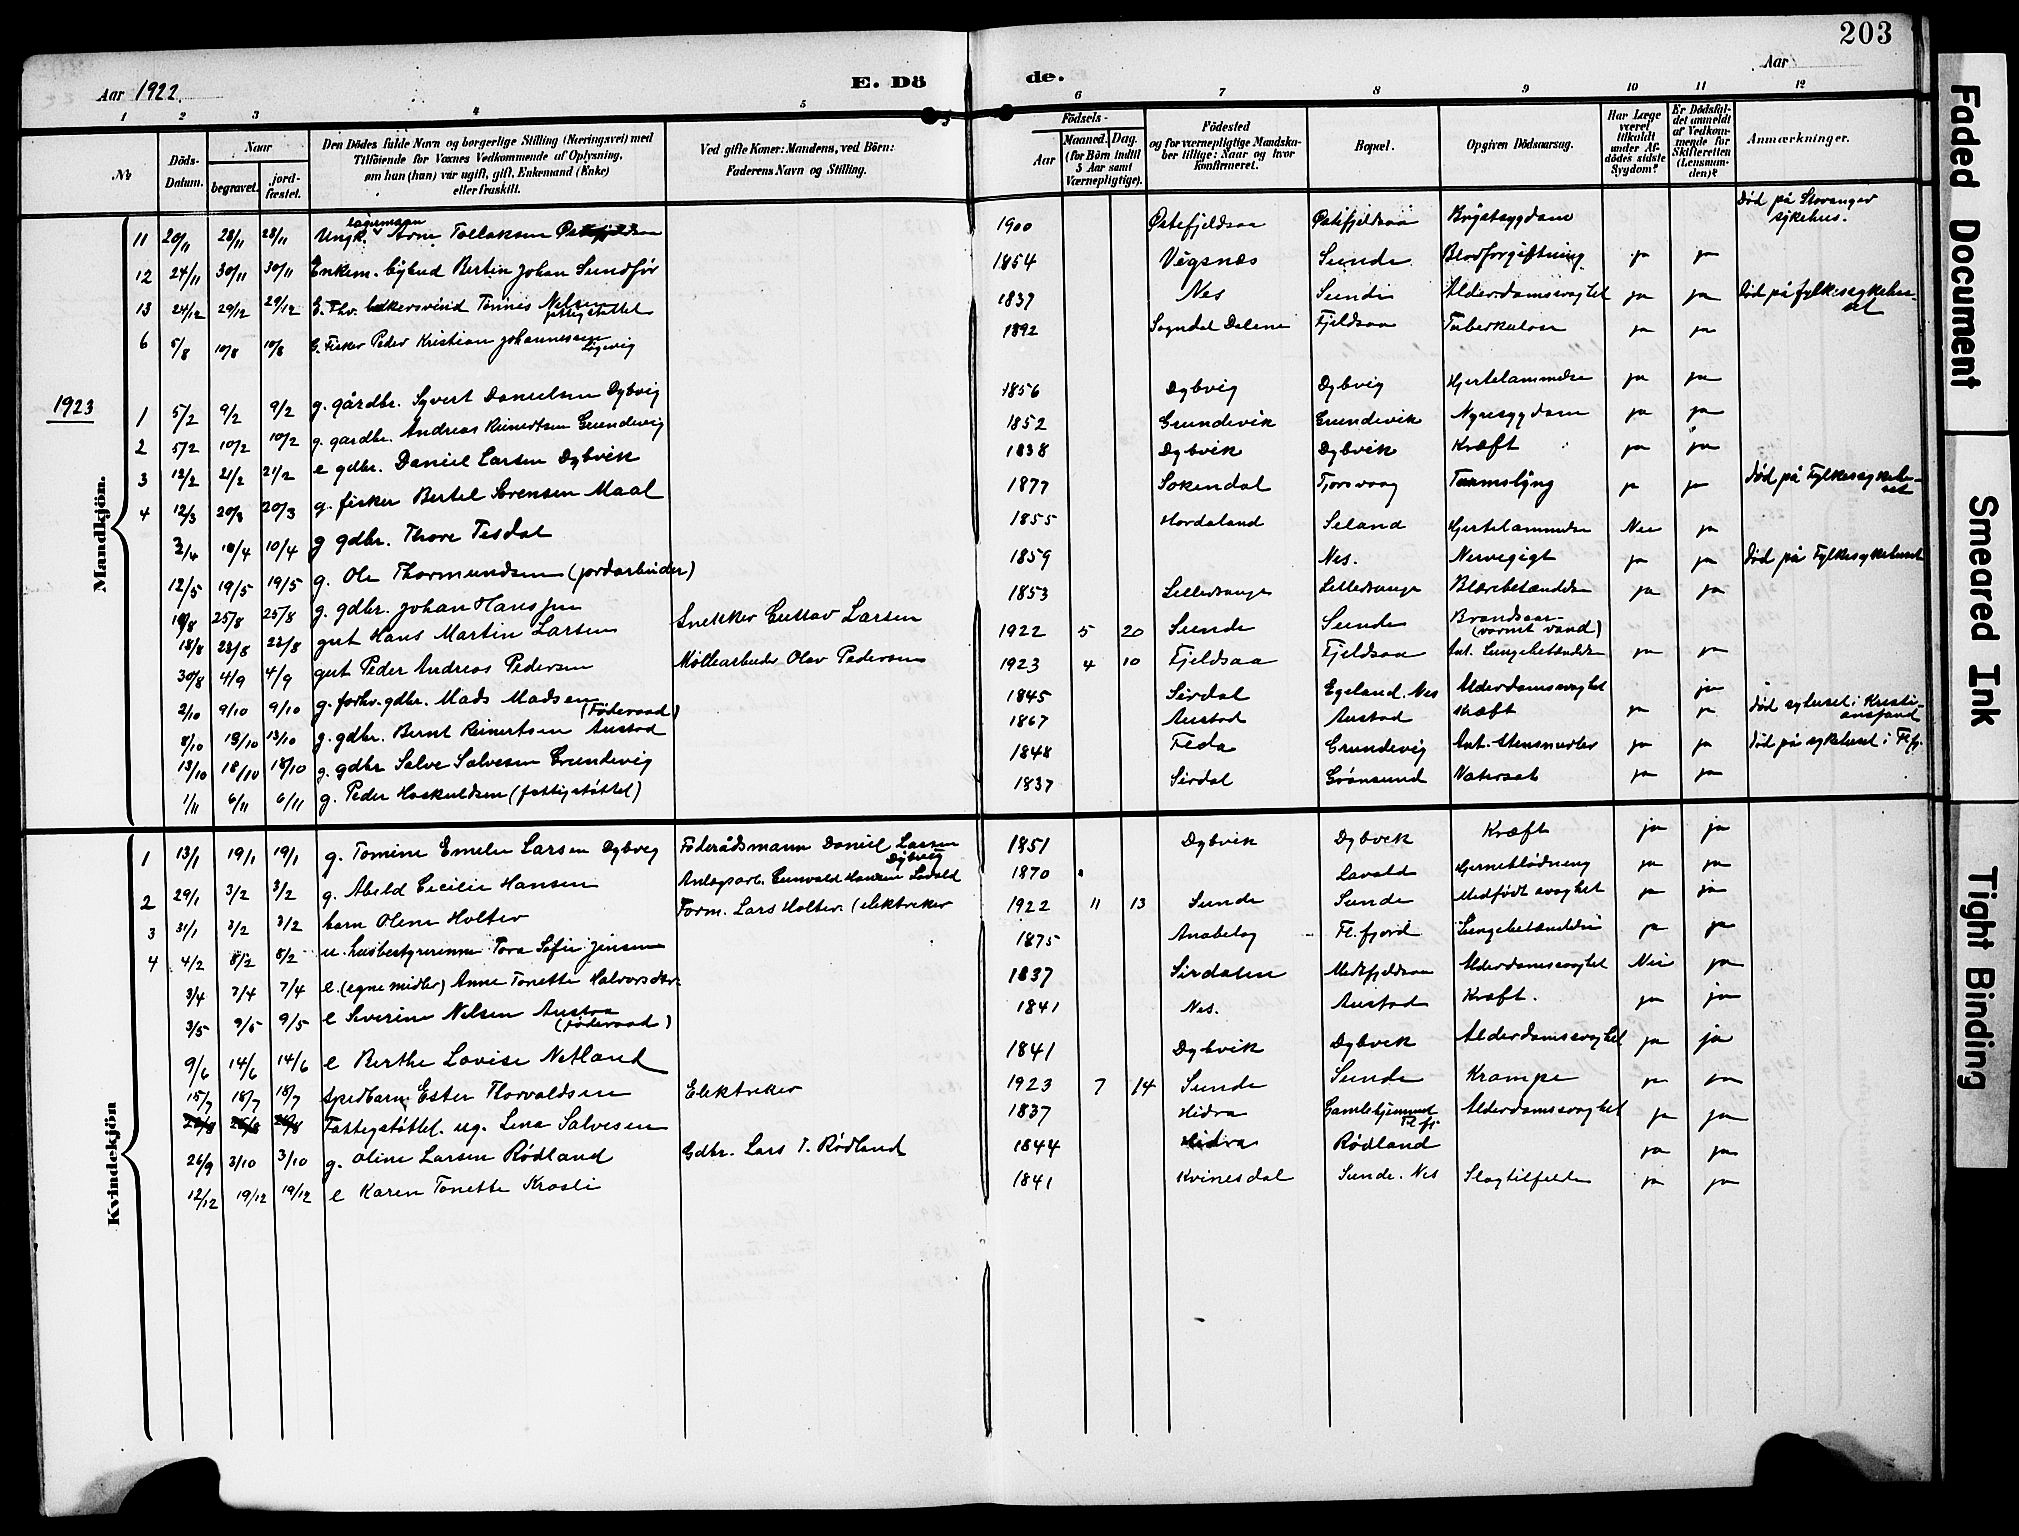 203
Aar 1922. E. Dö de. Aar
1 2 3 4 5 6 7 8 9 10 11 12
№ Döds-Datum. Naar begravet. jord-fæstet. Den Dödes fulde Navn og borgerlige Stilling (Næringsvei) med Tilföiende for Voxnes Vedkommende af Oplysning, om han (hun) var ugift, gift, Enkemand (Enke) eller fraskilt. Ved gifte Koner: Mandens, ved Börn: Faderens Navn og Stilling. Födsels- Aar Maaned. Dag. (for Börn indtil 5 Aar samt Værnepligtige). Födested og for værnepligtige Mandskaber tillige: Naar og hvor konfirmeret. Bopæl. Opgiven Dödsaarsag. Har Læge været tilkaldt under Afdödes sidste Sygdom? Er Dödsfaldet anmeldt af Vedkommende for Skifteretten (Lensmanden)? Anmærkninger.
Mandkjön.
11 20/11 28/11 28/11 Ungk. Arne Tollaksen 1900 Østefjeldsaa Østefjeldsaa Brystsygdom Død på Stavanger sykehus.
12 24/11 30/11 30/11 Enkem. bybud Bertin Johan Sundfør 1854 Vegsnæs Sunde Blodforgiftning ja ja
13 24/12 29/12 29/12 E. Fhv. Tønnes Nelsen fattigstøttet 1837 Nes Sunde Alderdomssvaghet ja ja Død på fylkessykehuset
6 5/8 10/8 10/8 G. Fisker Peder Kristian Johannessen Løgevig 1892 Sogndal Dalene Fjeldsaa Tuberkulose ja ja
1923
1 5/2 9/2 9/2 g. gårdbr. Syvert Danielsen Dybvig 1856 Dybvig Dybvig Hjertelammelse ja ja
2 5/2 10/2 10/2 g. gardbr. Andreas Reinertsen Grundevig 1852 Grundevik Grundevik Nyresygdom ja ja
3 12/2 21/2 21/2 e gdbr. Daniel Larsen Dybvik 1838 Dybvik Dybvik Kræft ja ja
4 12/3 20/3 20/3 g. fisker Bertel Sørensen Maal 1877 Sokendal Tjorsvaag Tarmslyng ja ja Død på Fylkessykehuset
2/4 10/4 10/4 g gdbr. Thore Tisdal 1855 Hordaland Seland Hjertelammelse Nei ja
12/5 19/5 19/5 g. Ole Thormundsen (jordarbeider) 1859 Nes. Nervegigt ja ja Død på Fylkessykehuset
19/8 25/8 25/8 g. gdbr. Johan Hanssen 1853 Lilledrange Lilledrange Blærebetændelse ja ja
18/8 22/8 22/8 gut Hans Martin Larsen Snekker Gustav Larsen 1922 5 20 Sunde Sunde Brandsaar (varmt vand)
30/8 4/9 4/9 gut Peder Andreas Pedersen Møllearbeider Olav Pedersen 1923 4 10 Fjeldsaa Fjeldsaa Ant. Lungebetændelse ja ja
2/10 9/10 9/10 g. forhv. gdbr. Mads Madsen (Føderaad) 1845 Sirdal Egeland. Nes Alderdomssvaghet ja
8/10 13/10 13/10 g. gdbr. Bernt Reinertsen Austad 1867 Austad Austad Kræft ja ja Død sykehuset i Kristiansand
13/10 18/10 18/10 g. gdbr Salve Salvesen Grundevig 1848 Feda Grundevig Ant. ja ja Død på sykehuset i Fl.fj.
1/11 6/11 6/11 g. Peder Haskuldsen (fattigstøttet) 1837 Sirdal Grønsund ja ja
Kvindekjön
1 13/1 19/1 19/1 g. Tomine Emelie Larsen Dybveg Føderådsmann Daniel Larsen Dybvig 1851 Dybvik Dybvik Kræft ja ja
2 29/1 3/2 3/2 g. Abeld Cecilie Hansen Anlegsarb. Gunvald Hansen Lavold 1870 Lavold Hjerneblødning ja ja
3 31/1 3/2 3/2 barn Oline Holter Form. Lars Holter (elektriker 1922 11 13 Sunde Sunde Medfødt svaghet ja ja
4 4/2 8/2 8/2 u. husbestyrerinne Tora Sofie Jensen 1875 Anabeløy Fl.fjord Lungebetændelse ja ja
3/4 7/4 7/4 e. (egne midler) Anne Tonette Halvorsdtr. 1837 Sirdalen Midtfjeldsaa Alderdomssvaghet Nei ja
3/5 9/5 9/5 e Severine Nelsen Austaa (føderaad) 1841 Nes. Austad Kræft. ja ja
9/6 14/6 14/6 e Berthe Lovise Netland 1841 Dybvik Dybvik Alderdomssvaghet ja ja
15/7 18/7 18/7 spedbarn Ester Thorvaldsen Elektriker 1923 7 14 Sunde Sunde Krampe ja ja
26/8 26/8 Fattigstøttet. ug. Lena Salvesen 1837 Hidra Gamlehjemmet Fl.fj. Alderdomssvaghet ja ja
26/9 3/10 3/10 g. Oline Larsen Rødland Gdbr. Lars T. Rødland 1844 Hidra Rødland ja ja
12/12 19/12 19/12 e Karen Tonette Krosli 1841 Kvinesdal Sunde. Nes Slagtilfelde ja ja
Faded Document
Smeared Ink
Tight Binding